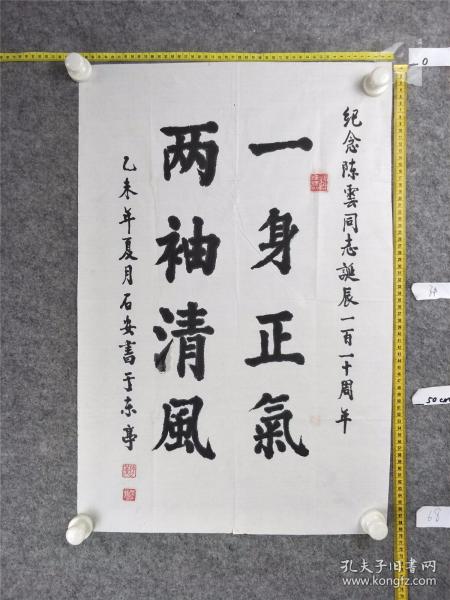 纪念陈雲同志誕辰一百一十周年
一身正氣
两袖清風
乙未年夏月石安書于东亭
0
34
50cm
68
孔夫子旧书网
www.kongfz.com